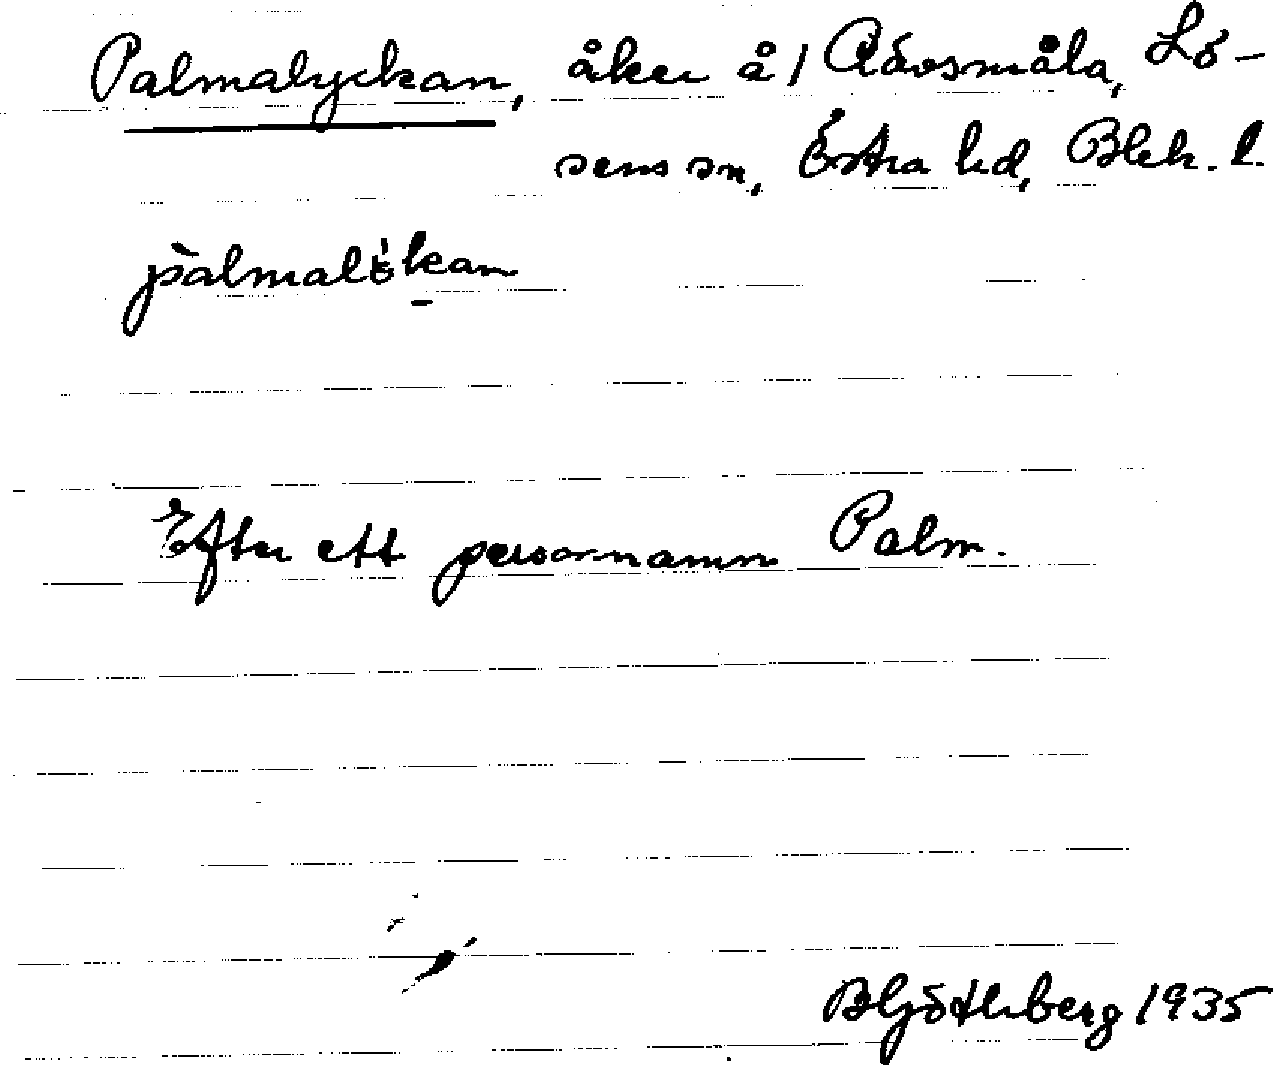 Palmalyckan, åker å 1 Rävsmåla, Lö-
sens sn, Östra hd, Blek. l.
pàlmalö́kan
Efter ett personnamn Palm.
1935